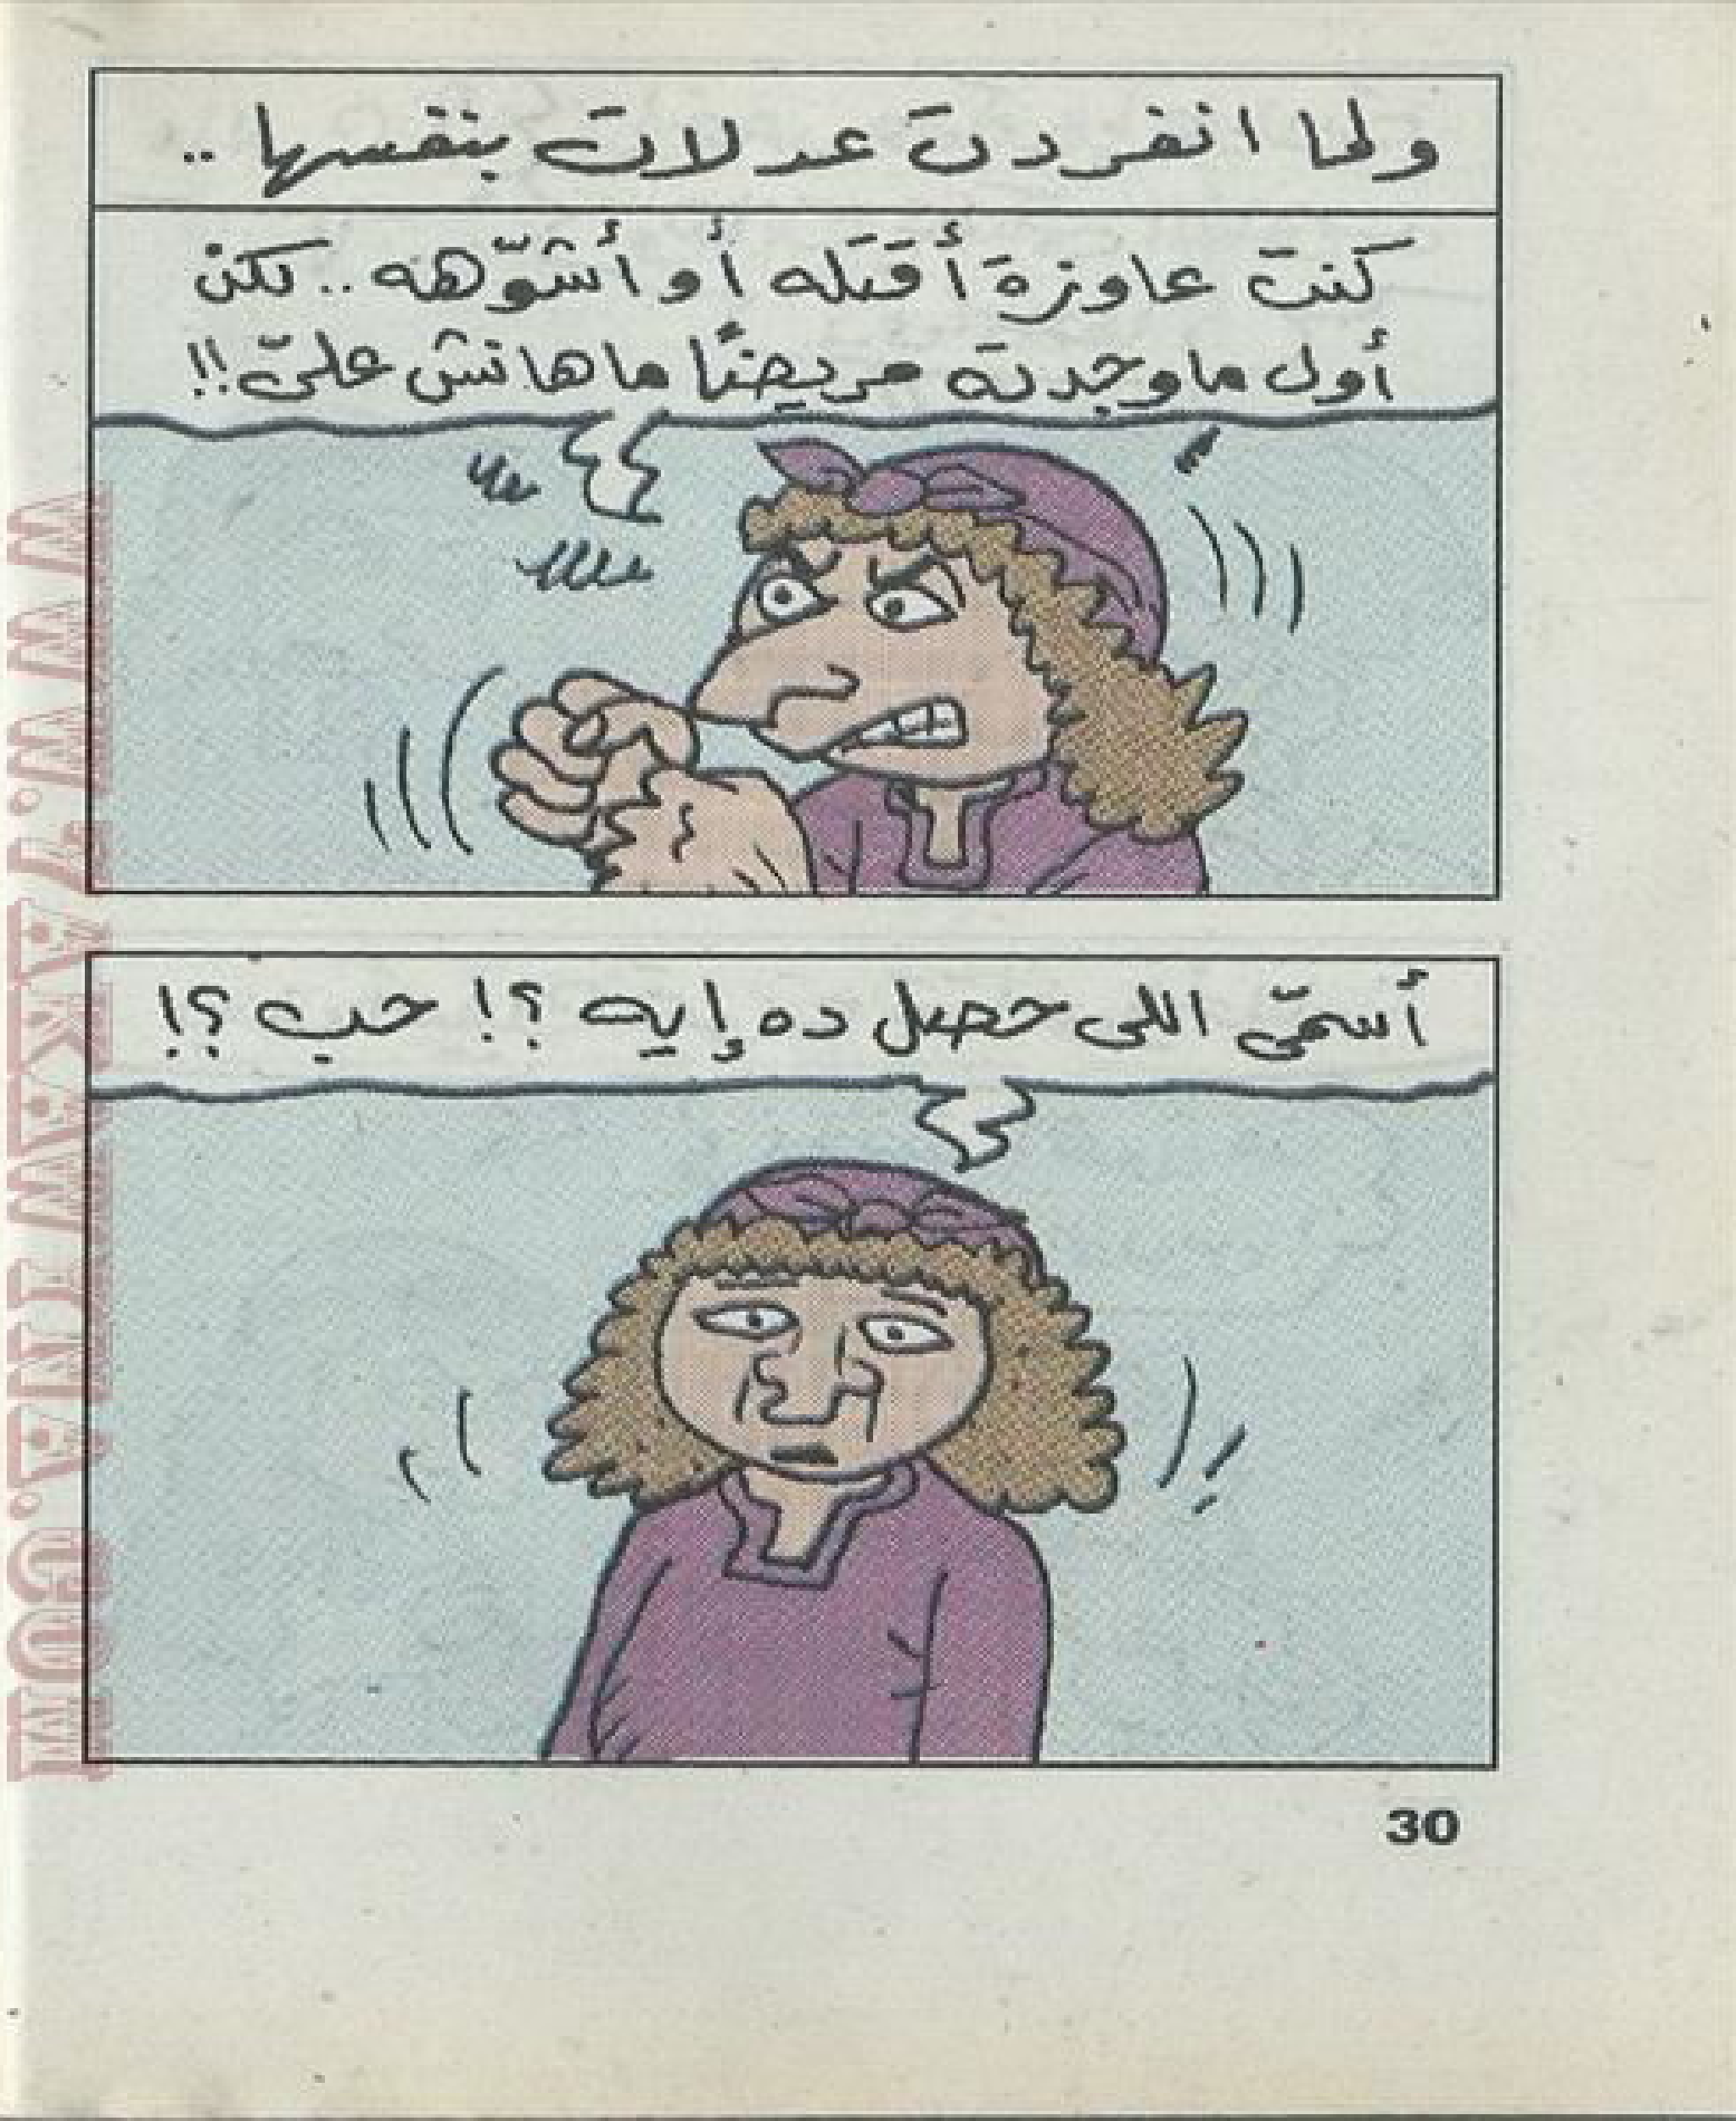 ولما انفردت عدلات بنفسها ..
كنت عاوزة أقتله أو أشوّهه .. لكن
أول ما وجدته مريضًا ما هانش علىّ !!
أسمّى اللى حصل ده إيه ؟! حب ؟!
30
WWW.TAKEWTNE.COM